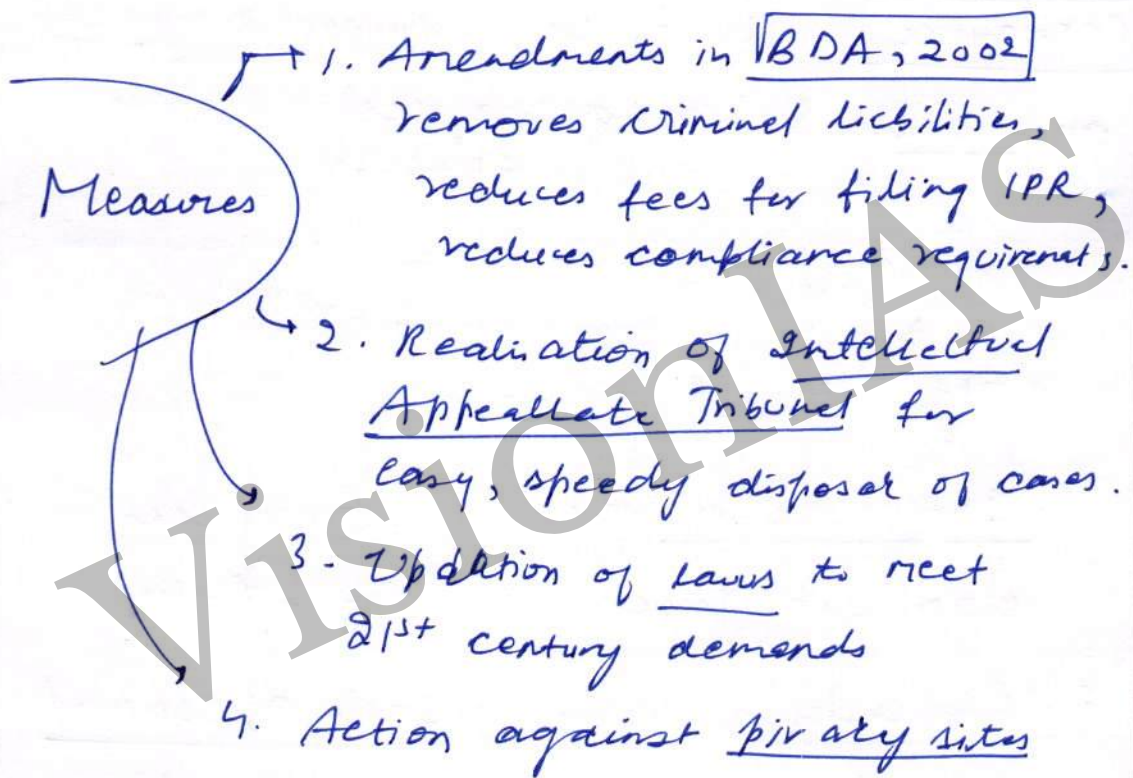 1. Amendments in BDA, 2002
removes criminal liabilities,
Measures
reduces fees for filing IPR,
reduces compliance requiremets.
2. Realisation of Intellectual
Appeallate Tribunal for
easy, speedy disposal of cases.
3- Updation of laws to meet
21st century demands
4. Action against piracy sites
VisionIAS